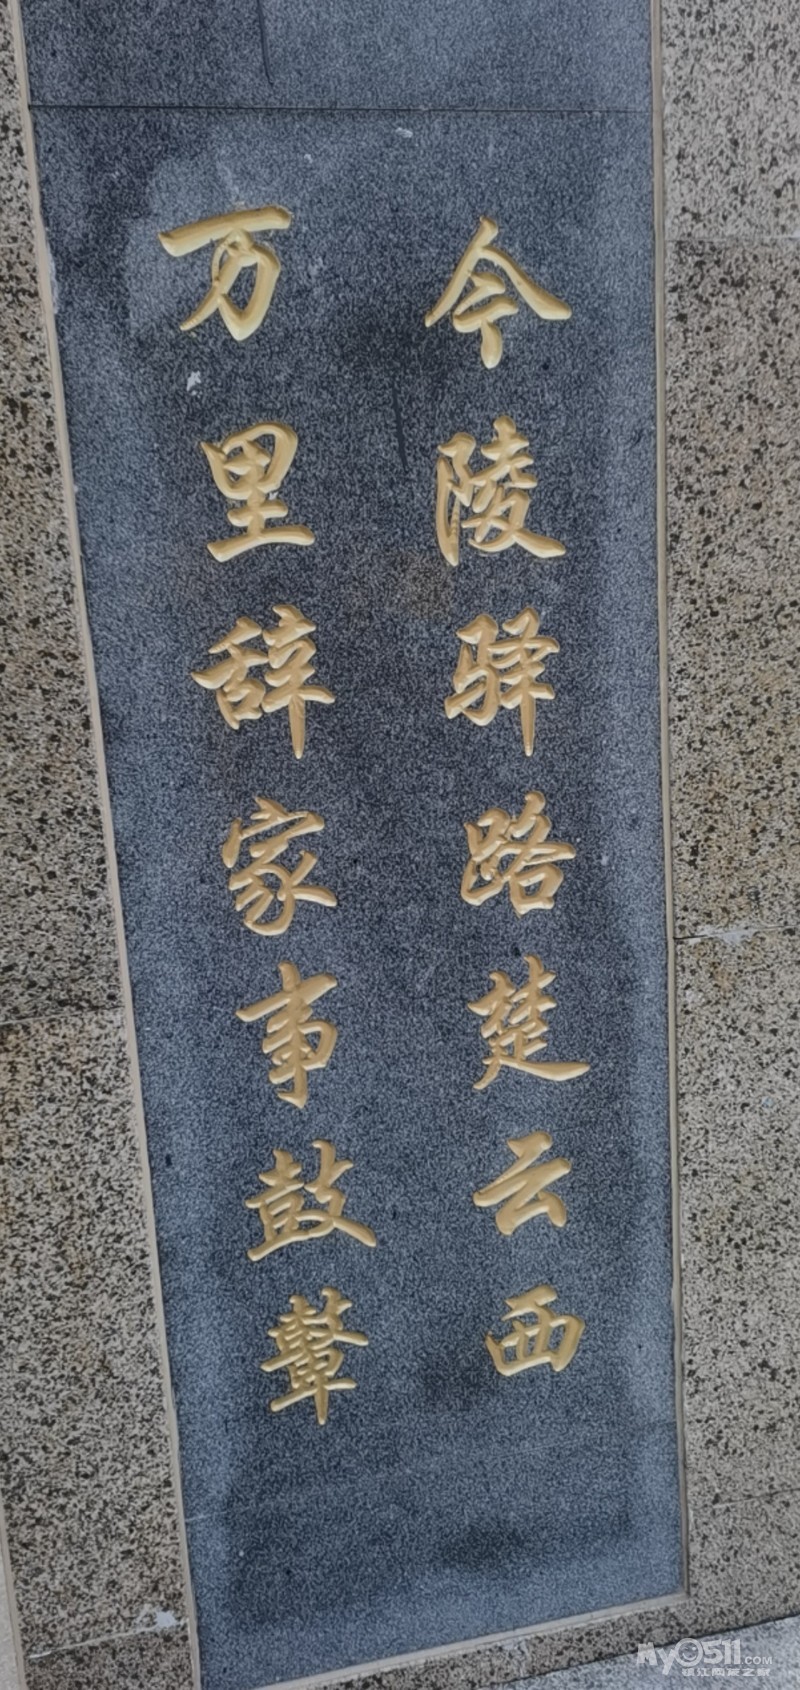 今陵驿路楚云西
万里辞家事鼓鼙
my0511.COM
镇江网友之家